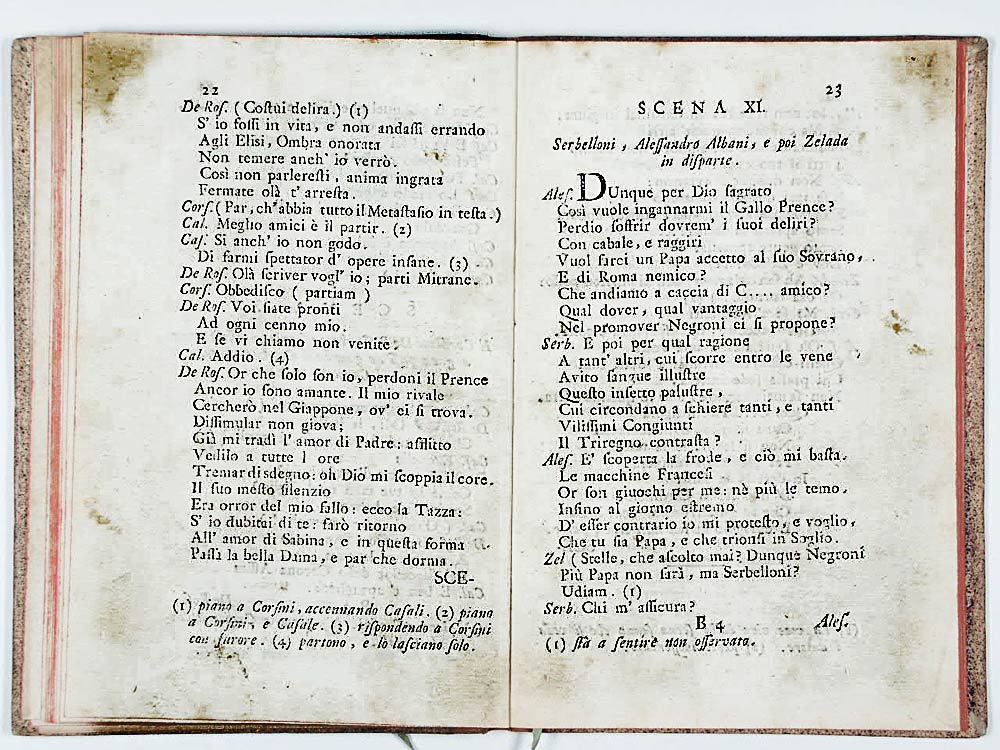 22
De Roſ. ( Coſtui delira. ) (1)
S' io foſſi in vita, e non andaſſi errando
Agli Eliſi, Ombra onorata
Non temere anch' io verrò.
Così non parlereſti, anima ingrata
Fermate olà t' arreſta.
Corſ. ( Par, ch' abbia tutto il Metaſtaſio in teſta. )
Cal. Meglio amici è il partir. (2)
Caſ. Si anch' io non godo.
Di farmi ſpettator d' opere inſane. (3)
De Roſ. Olà ſcriver vogl' io; parti Mitrane.
Corſ. Obbediſco ( partiam )
De Roſ. Voi ſiate pronti
Ad ogni cenno mio.
E ſe vi chiamo non venite.
Cal. Addio. (4)
De Roſ. Or che ſolo ſon io, perdoni il Prence
Ancor io ſono amante. Il mio rivale
Cercherò nel Giappone, ov' ei ſi trova.
Diſſimular non giova;
Già mi tradì l' amor di Padre: afflitto
Vedilo a tutte l ore
Tremar di sdegno: oh Dio mi ſcoppia il core.
Il ſuo meſto ſilenzio
Era orror del mio fallo: ecco la Tazza:
S' io dubitai di te: farò ritorno
All' amor di Sabina, e in queſta forma
Paſſa la bella Dama, e par che dorma.
SCE-
(1) piano a Corſini, accennando Caſali. (2) piano
a Corſini, e Caſale. (3) riſpondendo a Corſini
con furore. (4) partono, e lo laſciano ſolo.
23
SCENA XI.
Serbelloni, Aleſſandro Albani, e poi Zelada
in diſparte.
Aleſ. DUnque per Dio ſagrato
Così vuole ingannarmi il Gallo Prence?
Perdio ſoffrir dovrem' i ſuoi deliri?
Con cabale, e raggiri
Vuol farci un Papa accetto al ſuo Sovrano,
E di Roma nemico?
Che andiamo a caccia di C..... amico?
Qual dover, qual vantaggio
Nel promover Negroni ei ſi propone?
Serb. E poi per qual ragione
A tant' altri, cui ſcorre entro le vene
Avito ſangue illuſtre
Queſto inſetto paluſtre,
Cui circondano a ſchiere tanti, e tanti
Viliſſimi Congiunti
Il Triregno contraſta?
Aleſ. E' ſcoperta la frode, e ciò mi baſta.
Le macchine Franceſi
Or ſon giuochi per me: nè più le temo.
Inſino al giorno eſtremo
D' eſſer contrario io mi proteſto, e voglio,
Che tu ſia Papa, e che trionfi in Soglio.
Zel ( Stelle, che aſcolto mai? Dunque Negroni
Più Papa non ſarà, ma Serbelloni?
Udiam. (1)
Serb. Chi m' aſſicura?
B 4 Aleſ.
(1) ſtà a ſentire non oſſervato.